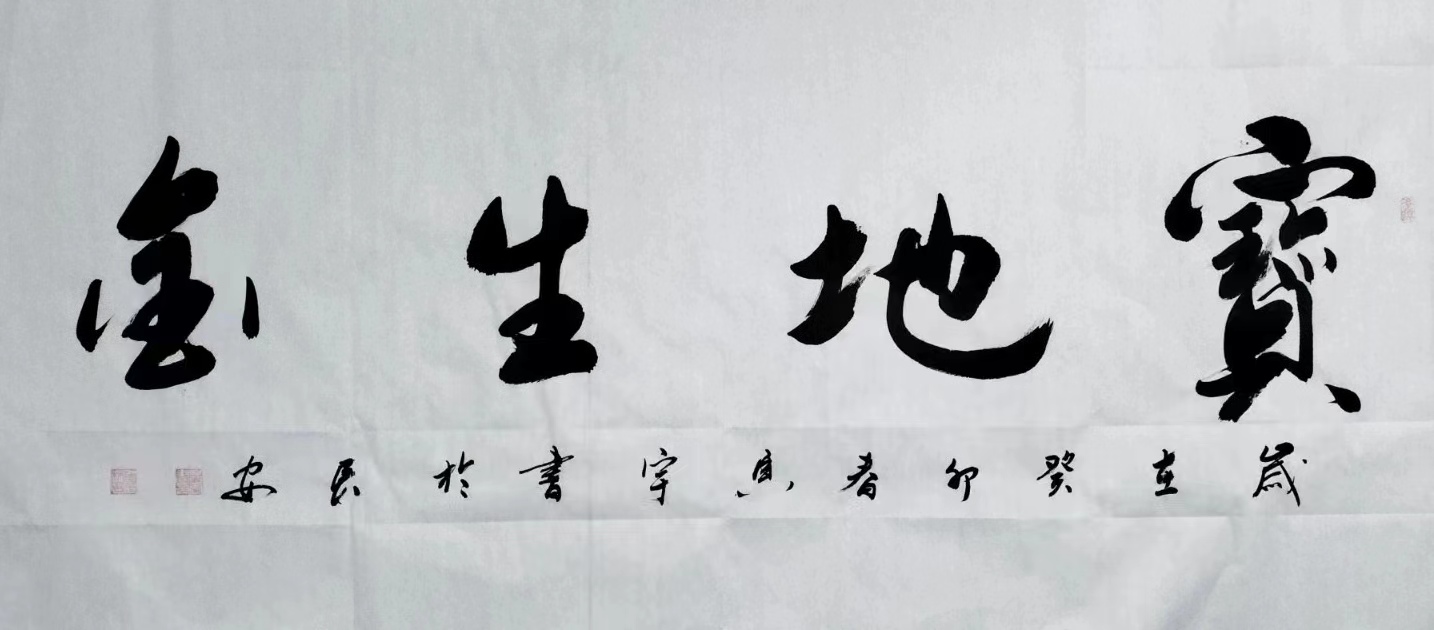 寶地生金
歲在癸卯春真宇書於民安